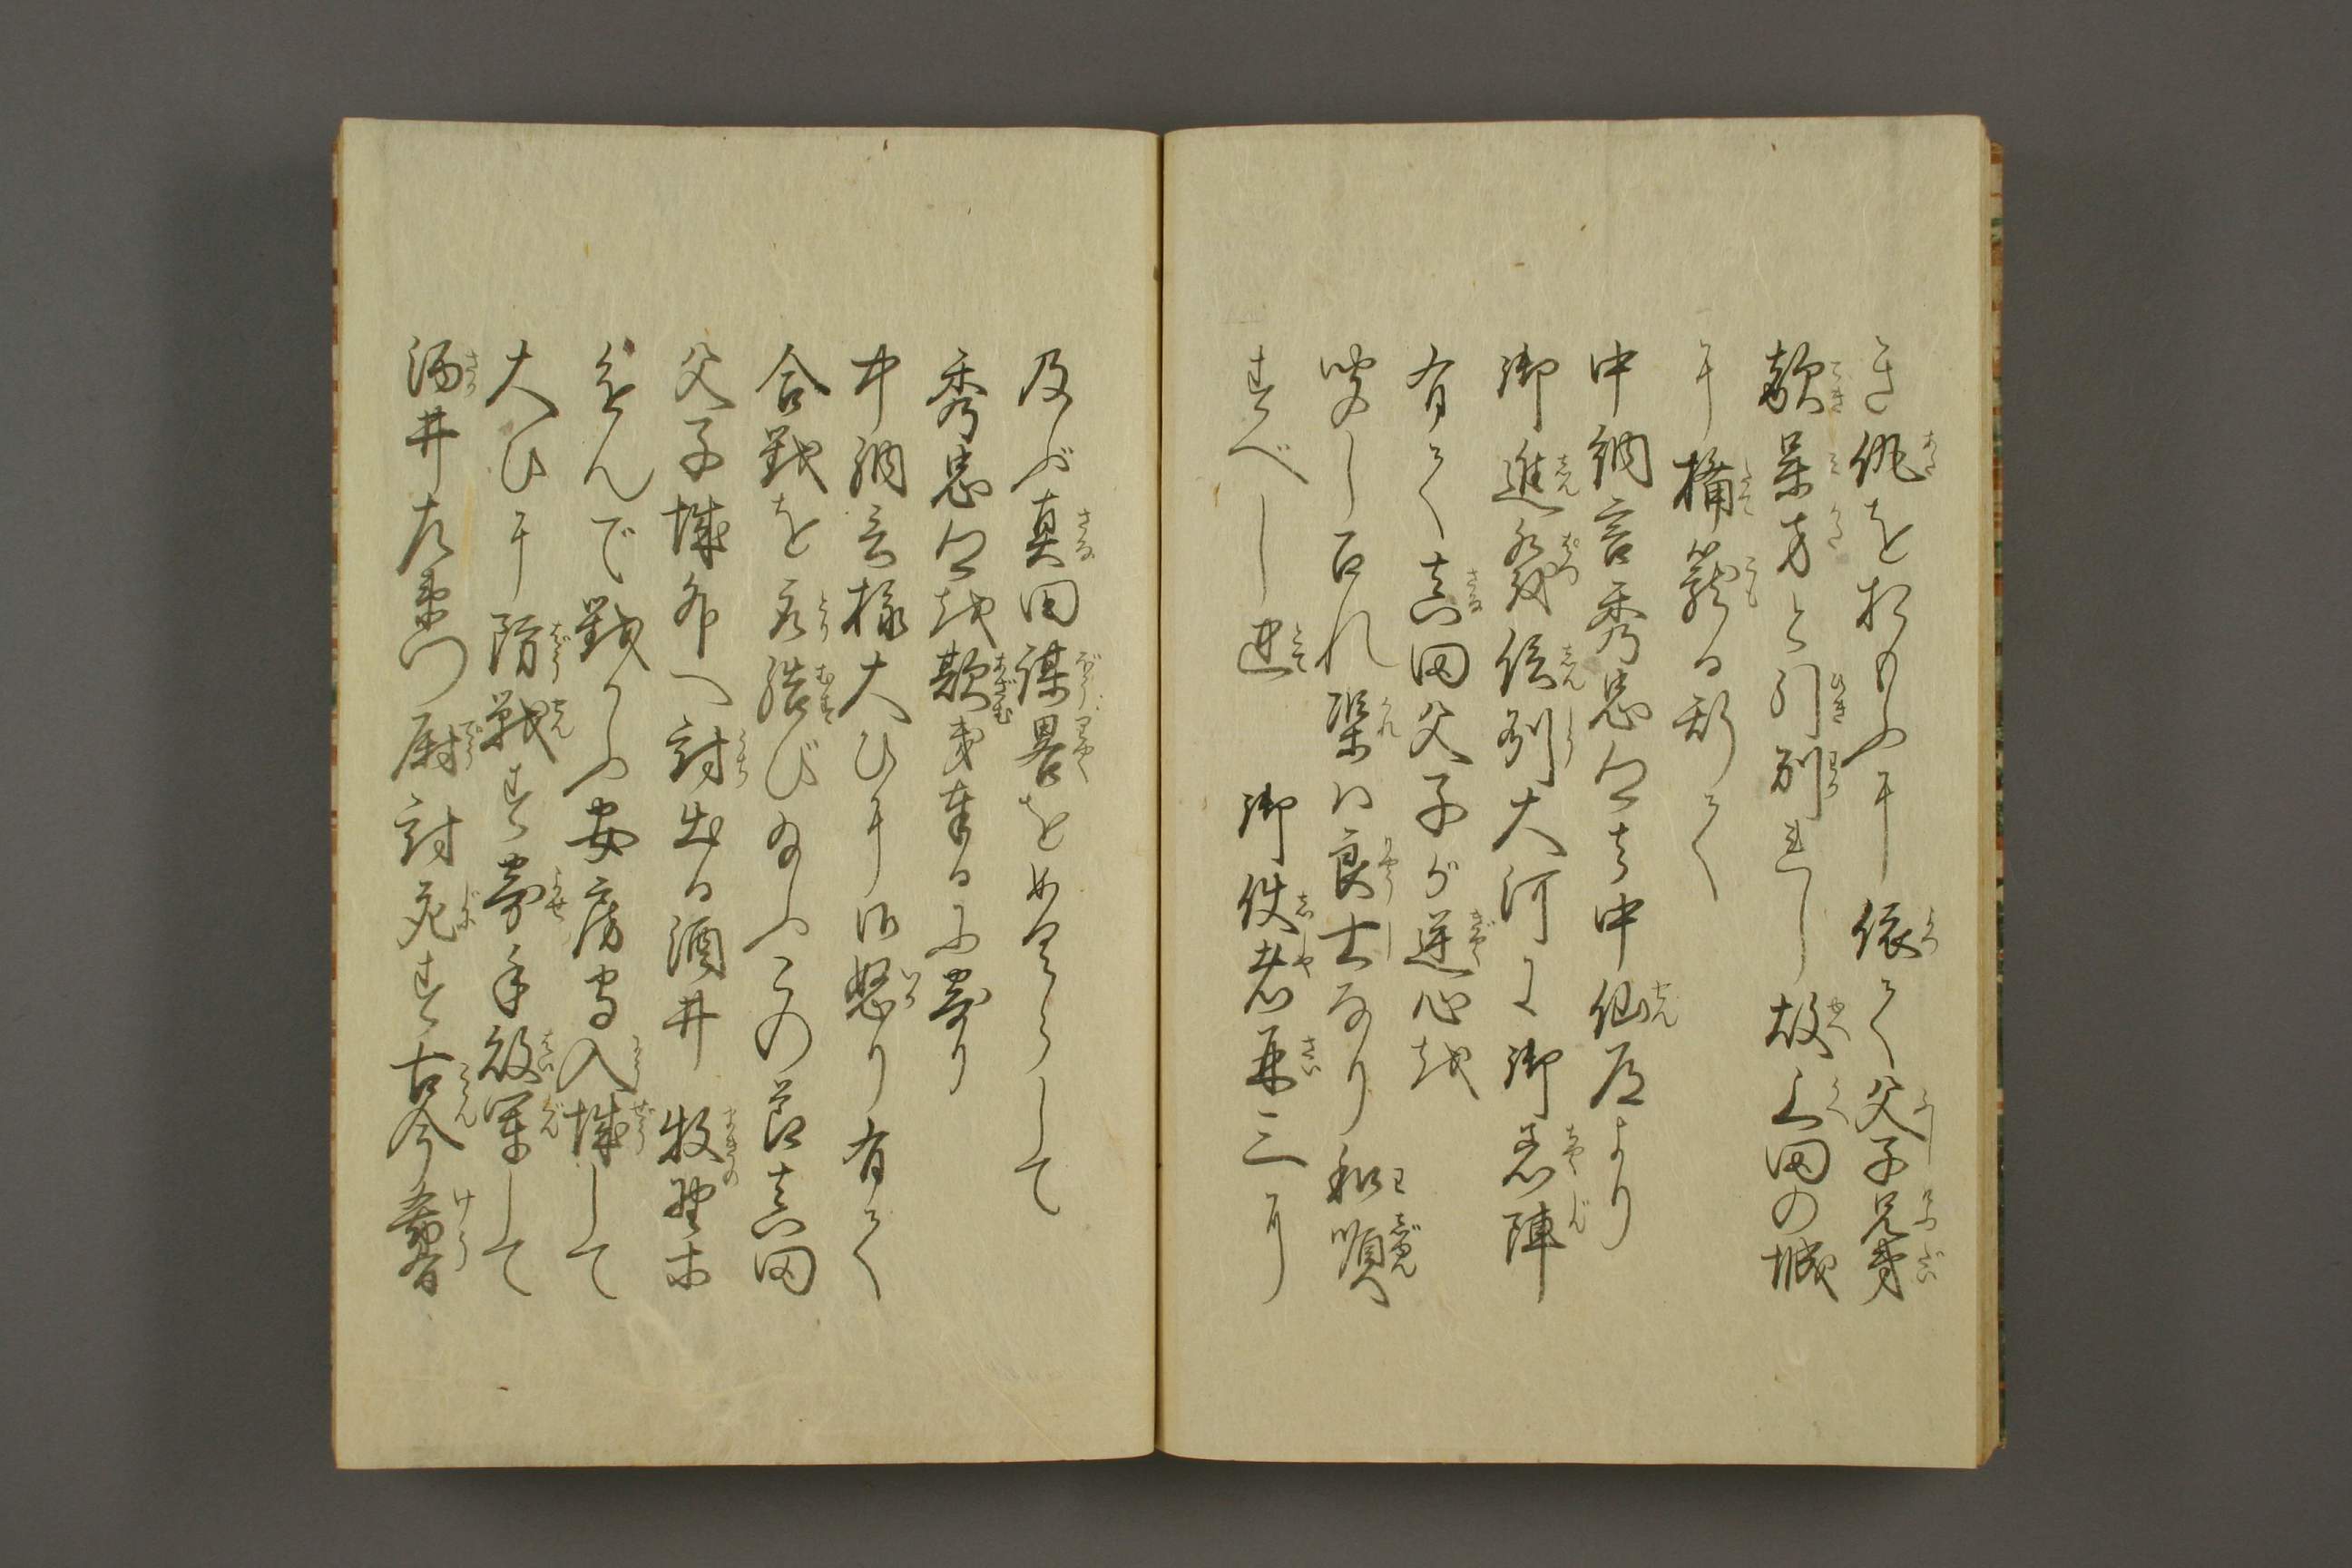 き仇をおもふに依て父子兄弟
敵呆方と引別れし故上田の城
に楯籠る形て
中納言秀忠公は中仙道より
御進発信列大河に御着陣
有て真田父子が逆心を
聞し召れ渠は良士なり和順
すべし迚 御使者再三に
及ぶ真田謀畧をめぐらして
秀忠公を欺き奉るに寄り
中納言様大ひに御怒り有て
合戦を取結び給ふこの節真田
父子城外へ討出る酒井 牧野等
をんで戦かふ安房守入城して
大ひに防戦す寄手敗軍して
酒井左衛門尉討死す古今